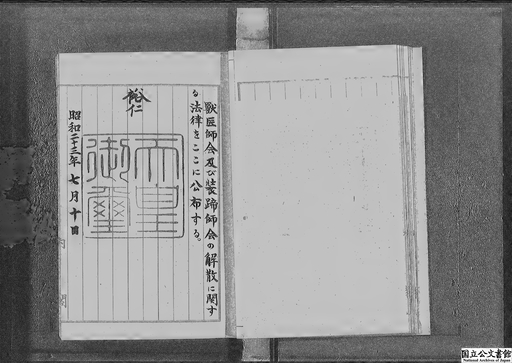 獣医師会及び装蹄師会の解散に関す
る法律をここに公布する。
裕仁
天皇
御璽
昭和二十三年七月十日
国立公文書館
National Archives of Japan